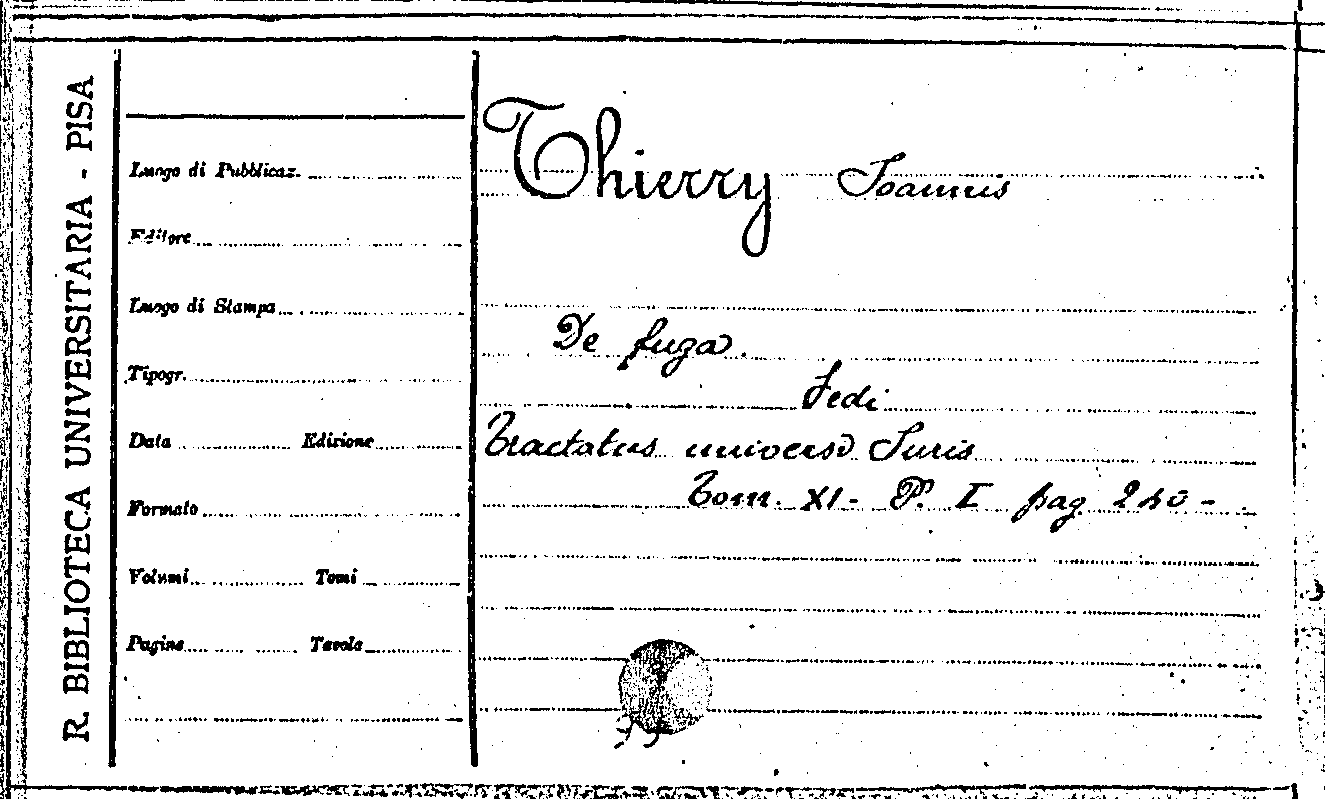 R. BIBLIOTECA UNIVERSITARIA - PISA
Luogo di Pubblicaz.
Editore
Luogo di Stampa
Tipogr.
Data Edizione
Formato
Volumi Tomi
Pagine Tavole
Thierry Joannis
De fuga.
Vedi
Tractatus universi Juris
Tom. XI - P. I pag 240 -